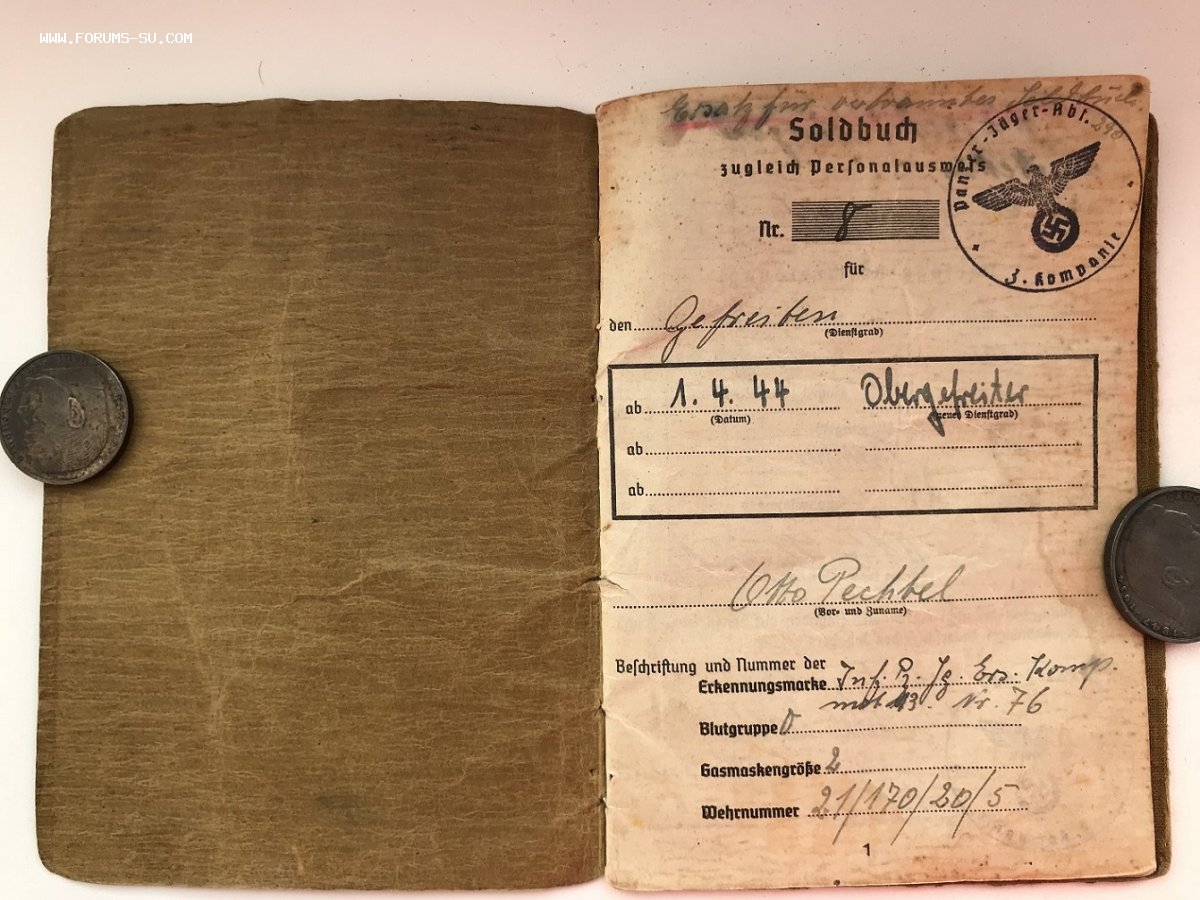 www.forums-su.com
Ersatz für verbranntes Soldbuch.
Soldbuch
zugleich Personalausweis
Panzer-Jäger-Abt. 290
3. Kompanie
Nr. 8
für
den Gefreiten
(Dienstgrad)
ab 1. 4. 44 Obergefreiter
(Datum) (neuer Dienstgrad)
ab
ab
Otto Pechtel
(Vor- und Zuname)
Beschriftung und Nummer der
Erkennungsmarke Inf. Pz. Jg. Ers. Komp.
mot 43. Nr. 76
Blutgruppe
Gasmaskengröße 2
Wehrnummer 21/170/20/5
1